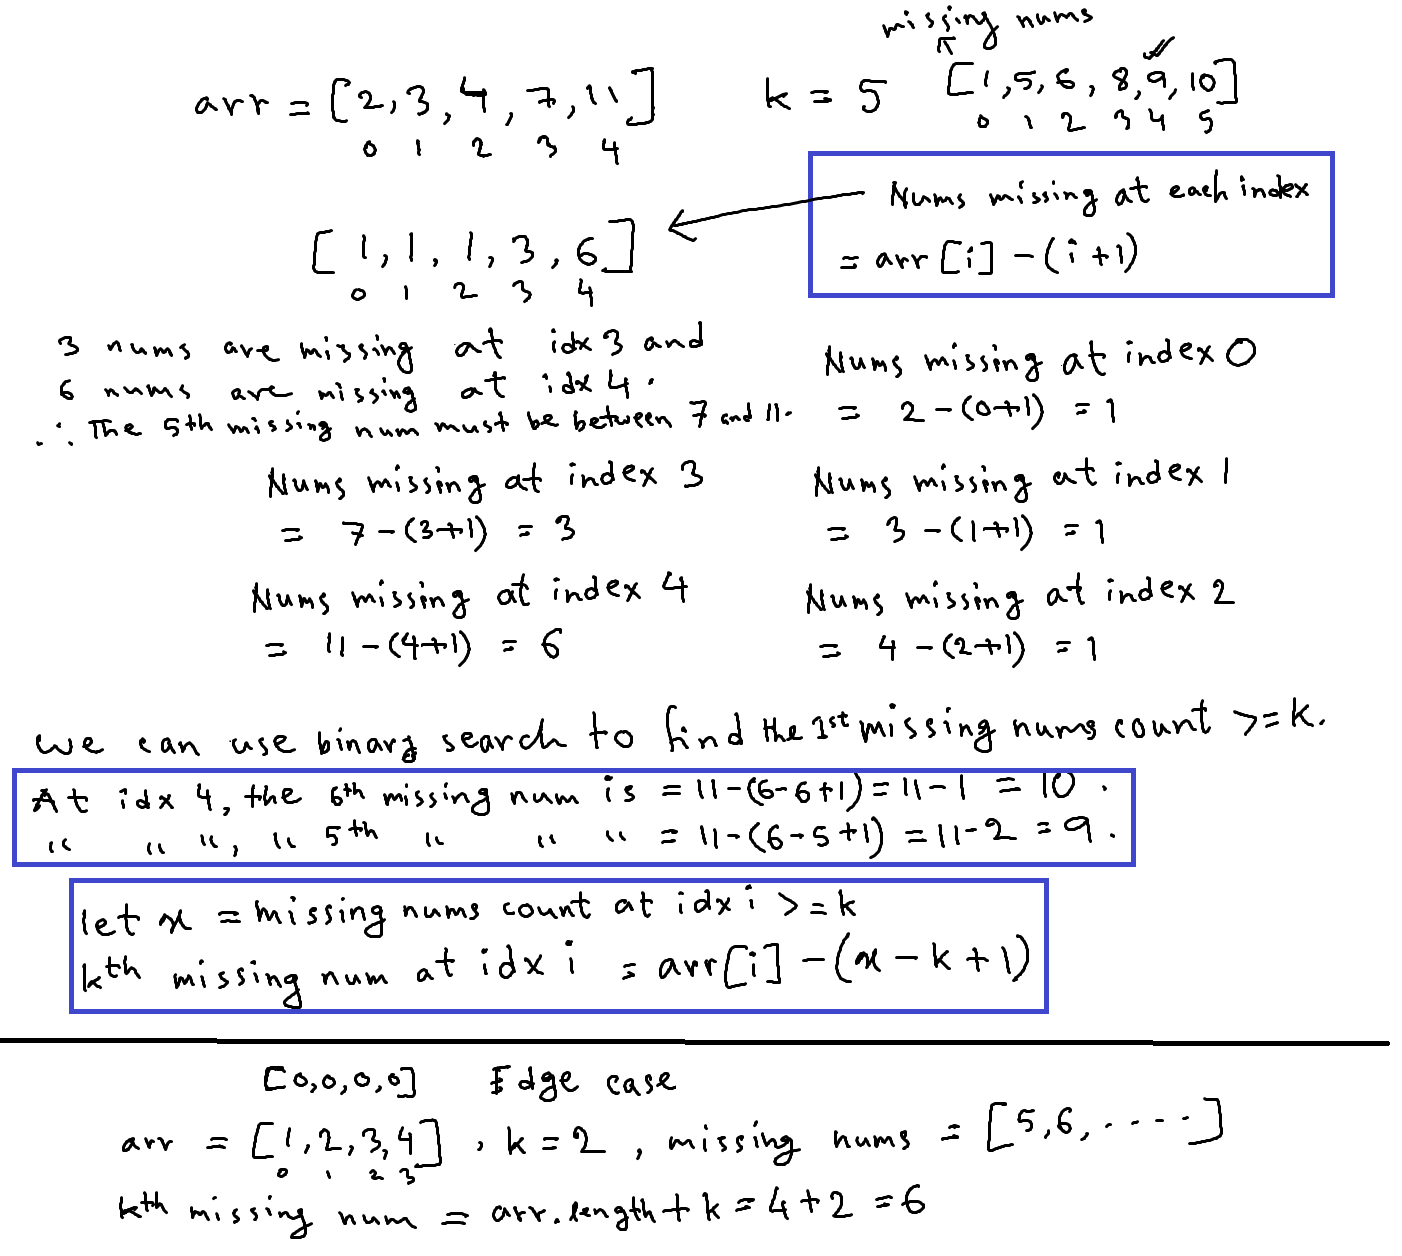 missing nums
arr = [2,3,4,7,11] k = 5 [1,5,6,8,9,10]
0 1 2 3 4 0 1 2 3 4 5
Nums missing at each index
= arr[i] - (i+1)
[1,1,1,3,6]
0 1 2 3 4
3 nums are missing at idx 3 and
6 nums are missing at idx 4.
∴ The 5th missing num must be between 7 and 11.
Nums missing at index 0
= 2-(0+1) = 1
Nums missing at index 3
= 7-(3+1) = 3
Nums missing at index 1
= 3-(1+1) = 1
Nums missing at index 4
= 11-(4+1) = 6
Nums missing at index 2
= 4-(2+1) = 1
we can use binary search to find the 1st missing nums count >=k.
At idx 4, the 6th missing num is = 11-(6-6+1) = 11-1 = 10.
" " ", " 5th " " " = 11-(6-5+1) = 11-2 = 9.
let x = missing nums count at idx i >=k
kth missing num at idx i = arr[i] - (x-k+1)
[0,0,0,0] Edge case
arr = [1,2,3,4], k=2, missing nums = [5,6,.....]
0 1 2 3
kth missing num = arr.length + k = 4+2 = 6